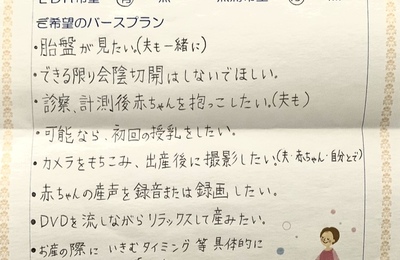 ご希望のバースプラン
・胎盤が見たい。(夫も一緒に)
・できる限り会陰切開はしないでほしい。
・診察、計測後赤ちゃんを抱っこしたい。(夫も)
・可能なら、初回の授乳をしたい。
・カメラをもちこみ、出産後に撮影したい。(夫・赤ちゃん・自分とで)
・赤ちゃんの産声を録音または録画したい。
・DVDを流しながらリラックスして産みたい。
・お産の際に いきむタイミング等 具体的に